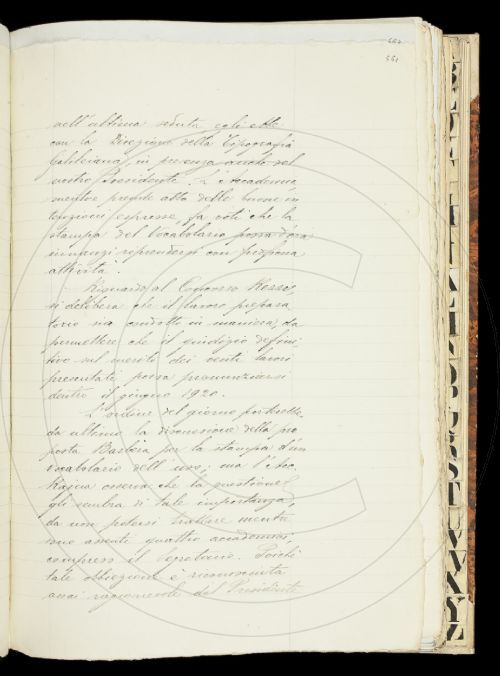 551
nell'ultima seduta egli ebbe
con la Direzione della Tipografia
Galileiana, in presenza anche del
nostro Presidente. L'Accademia
mentre prende atto delle buone in
tenzioni espresse, fa voti che la
stampa del Vocabolario possa d'ora
innanzi riprendersi con
attività.
Riguardo al Concorso Rezzi
si delibera che il lavoro prepara
torio sia condotto in maniera, da
permettere che il giudizio defini
tivo sul merito dei venti lavori
presentati possa pronunziarsi
dentro il giugno 1920.
L'ordine del giorno porterebbe
da ultimo la discussione della pro
posta Barbèra per la stampa d'un
vocabolario dell'uso; ma l'Acc.
Rajna osserva che la questione
gli sembra di tale importanza
da non potersi trattare mentre
sono assenti quattro accademici,
compreso il Segretario. Poichè
tale obbiezione è riconosciuta
assai ragionevole dal Presidente
B
L
N
O
P
Q
R
S
T
U
V
W
X
Y
Z